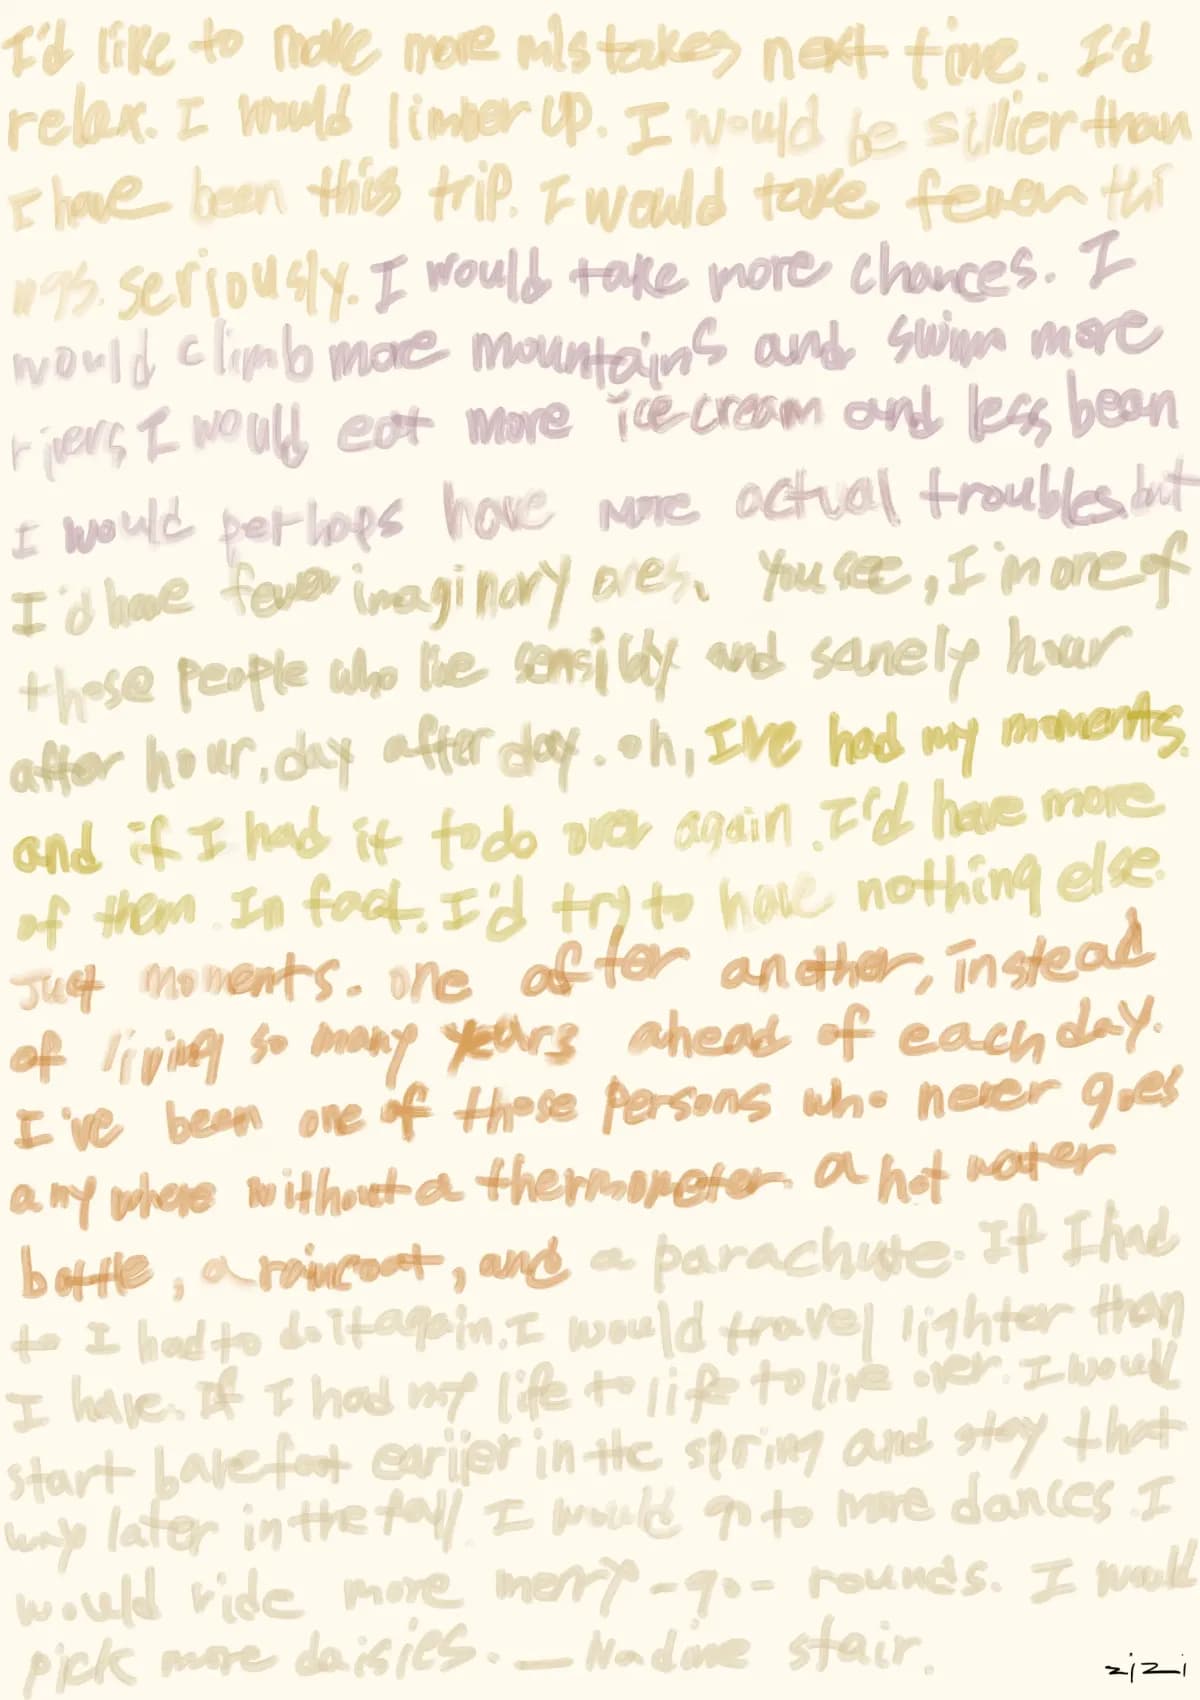 I'd like to make more mistakes next time. I'd
relax. I would limber up. I would be sillier than
I have been this trip. I would take fewer thi
ngs. seriously. I would take more chances. I
would climb more mountains and swim more
rivers I would eat more ice cream and less bean
I would perhaps have more actual troubles. but
I'd have fewer imaginary ones. You see, I'm one of
those people who live sensibly and sanely hour
after hour, day after day. oh, I've had my moments.
and if I had it to do over again. I'd have more
of them. In fact. I'd try to have nothing else.
Just moments. one after another, instead
of living so many years ahead of each day.
I've been one of those persons who never goes
any where without a thermometer. a hot water
bottle, a raincoat, and a parachute. If I had
to I had to do it again. I would travel lighter than
I have. If I had my life to life to live over. I would
start barefoot earijer in the spring and stay that
way later in the fall. I would go to more dances. I
would ride more merry-go-rounds. I would
pick more daisies. — Nadine stair.
zizi